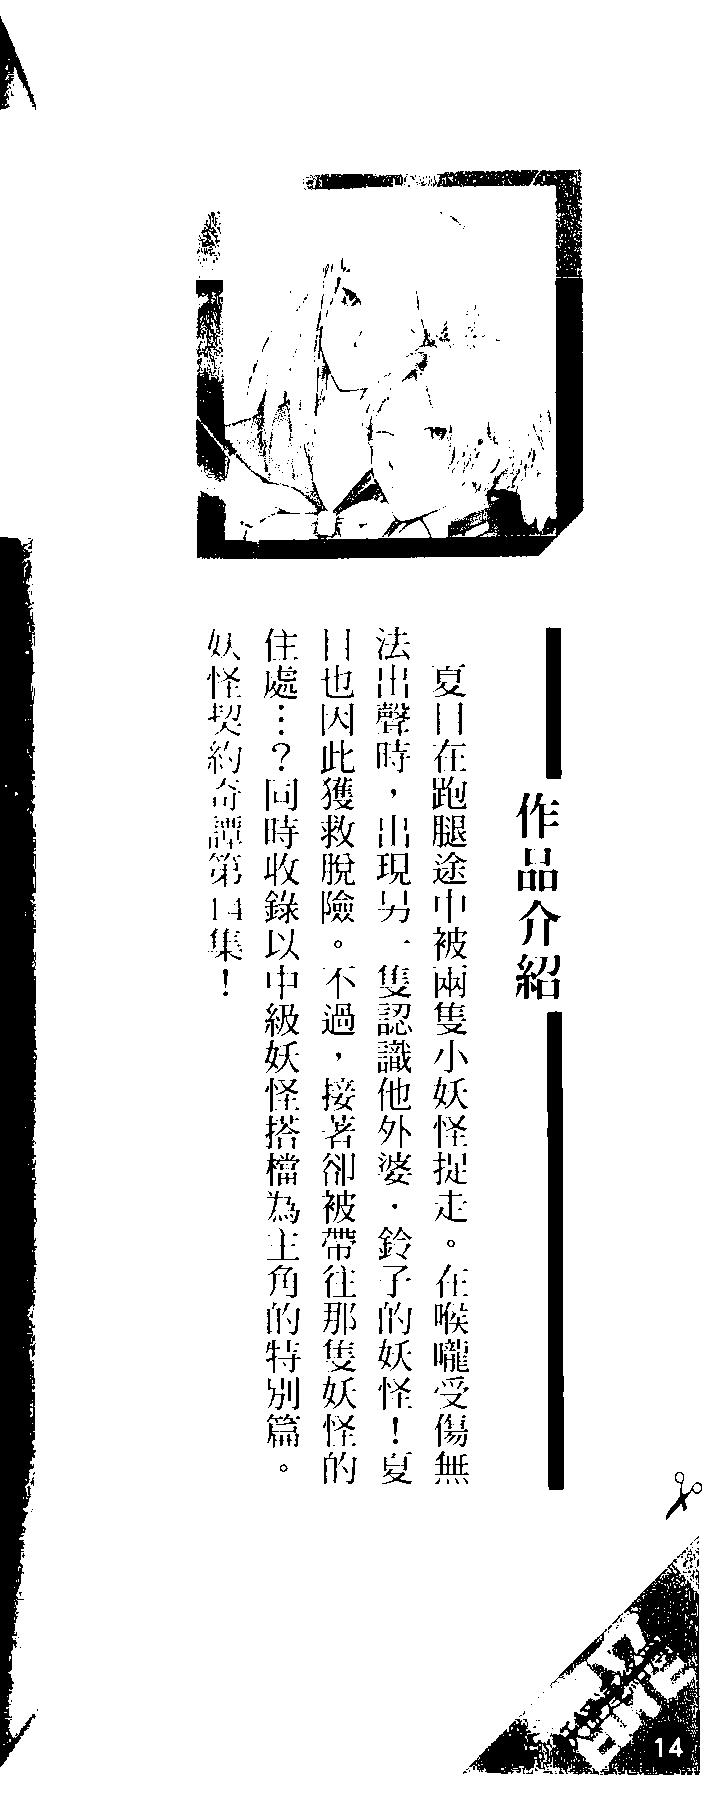 作品介紹
夏目在跑腿途中被兩隻小妖怪捉走。在喉嚨受傷無
法出聲時，出現另一隻認識他外婆．鈴子的妖怪！夏
目也因此獲救脫險。不過，接著卻被帶往那隻妖怪的
住處…？同時收錄以中級妖怪搭檔為主角的特別篇。
妖怪契約奇譚第14集！
14